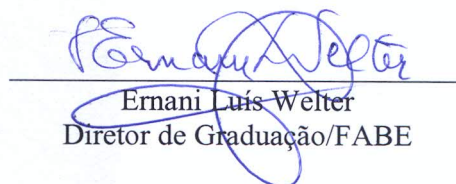 Ernani Welter
Ernani Luís Welter
Diretor de Graduação/FABE